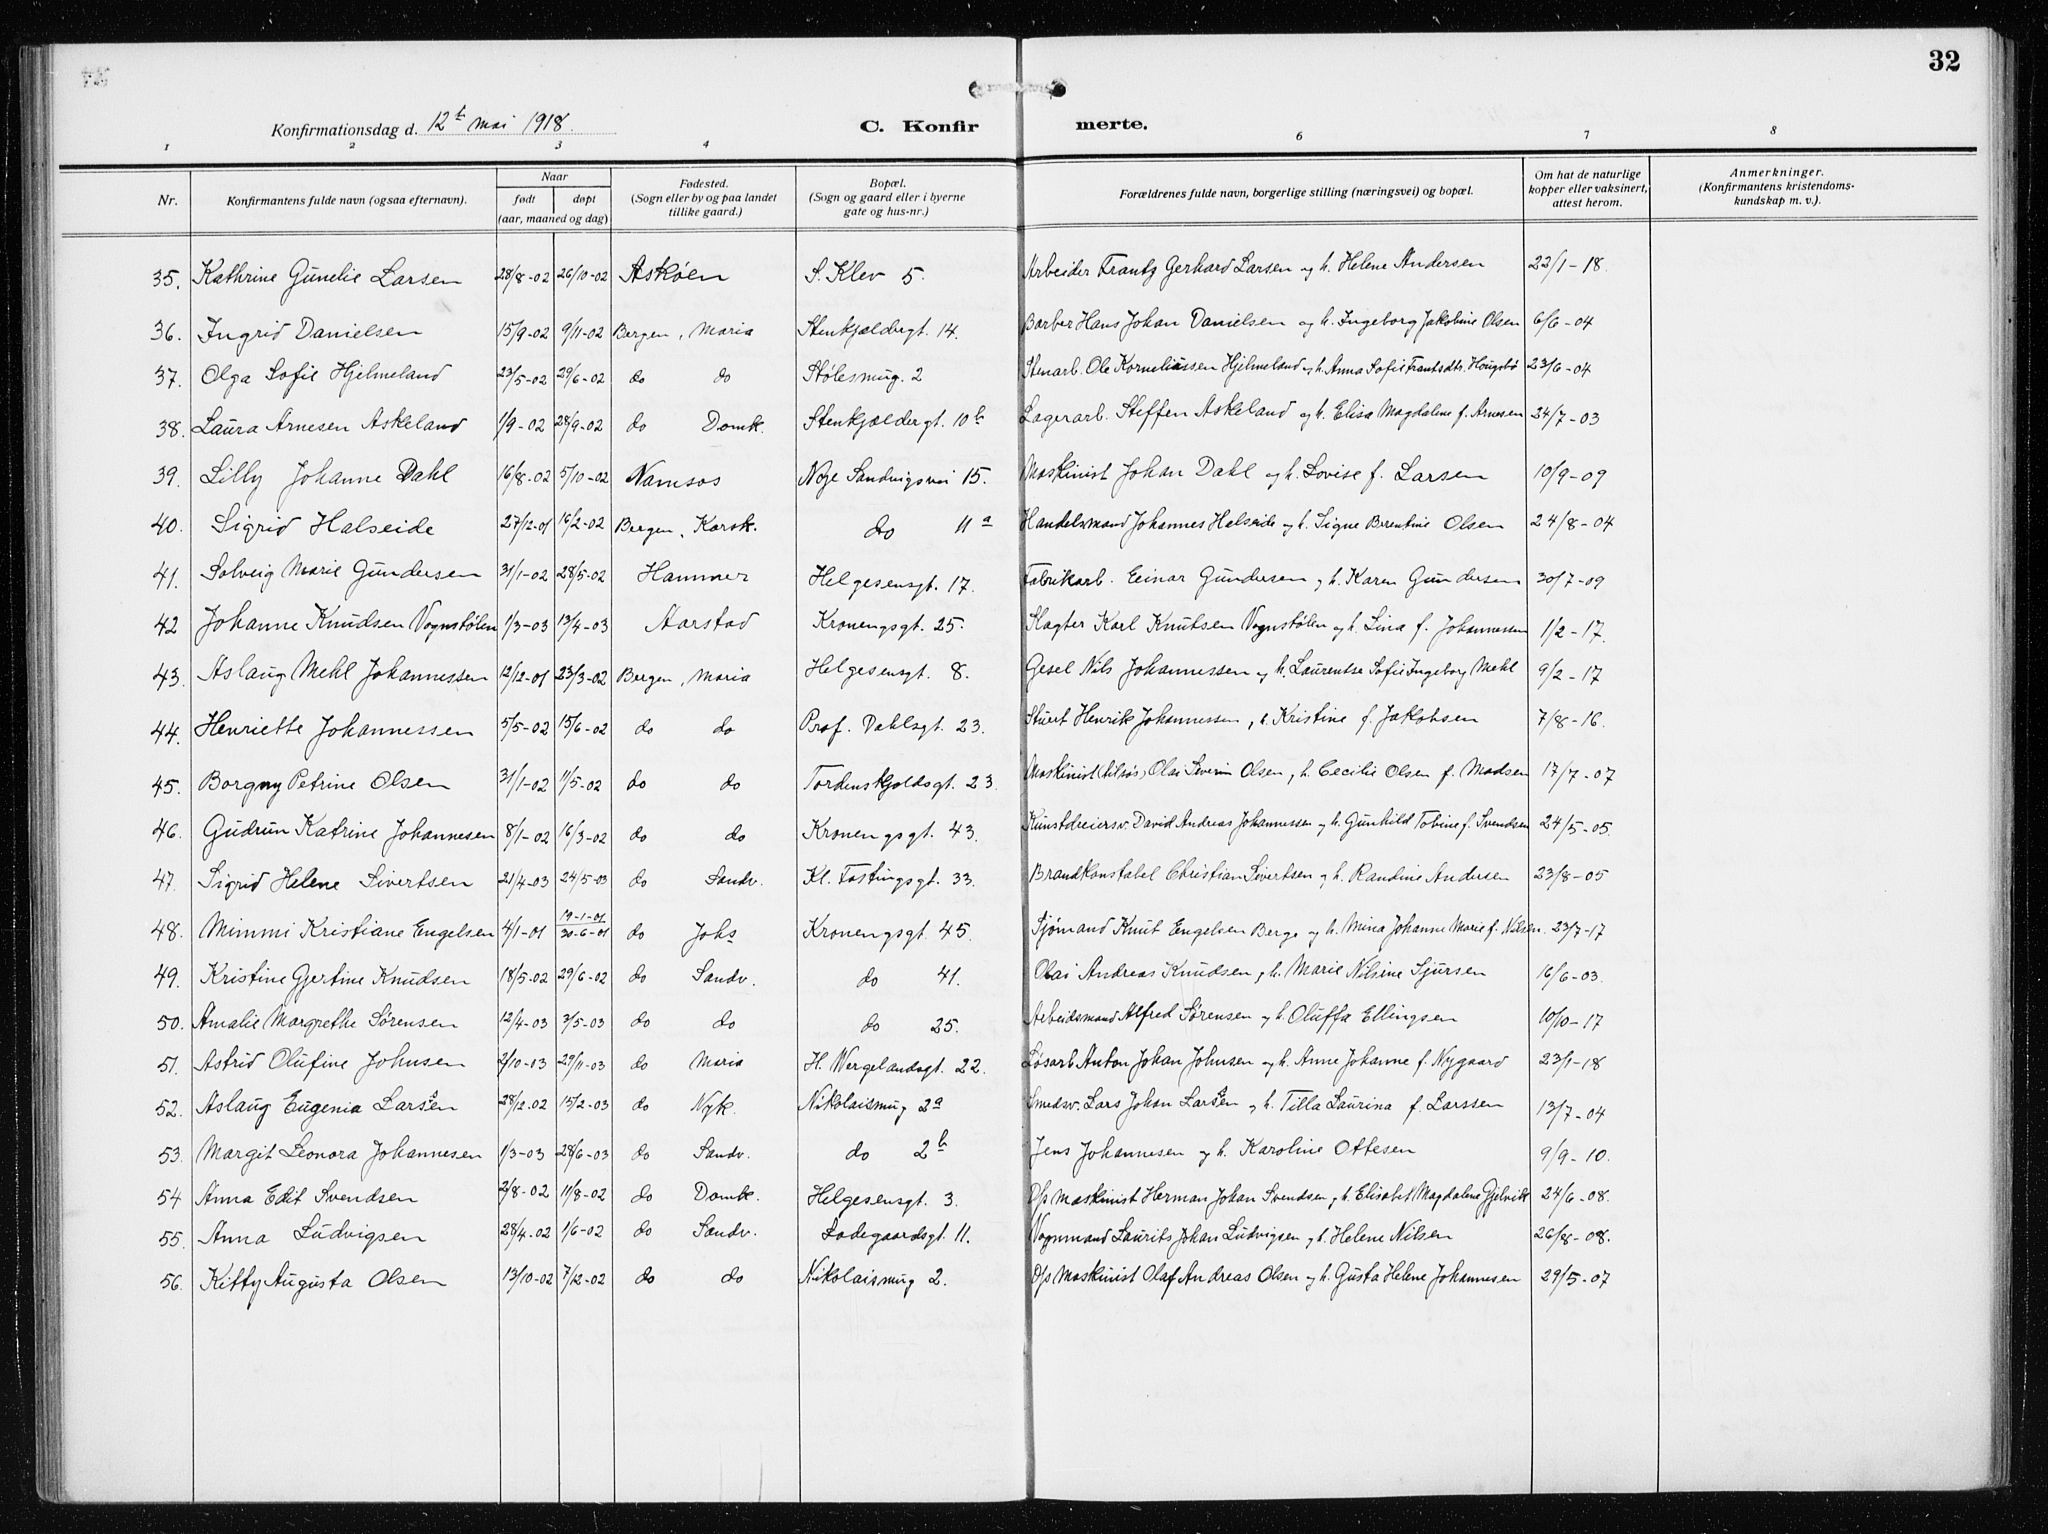 32
Konfirmationsdag d. 12te mai 1918.
C. Konfirmerte.
1 2 3 4 6 7 8
Nr. Konfirmantens fulde navn (ogsaa efternavn). Naar født døpt (aar, maaned og dag) Fødested. (Sogn eller by og paa landet tillike gaard.) Bopæl. (Sogn og gaard eller i byerne gate og hus-nr.) Forældrenes fulde navn, borgerlige stilling (næringsvei) og bopæl. Om hat de naturlige kopper eller vaksinert, attest herom. Anmerkninger. (Konfirmantens kristendomskundskap m. v.).
35. Kathrine Gunelie Larsen 28/8-02 26/10-02 Askøen S. Klev 5. Arbeider Frantz Gerhard Larsen og h. Helene Andersen 22/1-18.
36. Ingrid Danielsen 15/9-02 9/11-02 Bergen, Maria Stenkjældergt. 14. Barber Hans Johan Danielsen og h. Ingeborg Jakobine Olsen 6/6-04
37. Olga Sofie Hjelmeland 23/5-02 29/6-02 do do Stølesmug. 2 Stenarb. Ole Korneliussen Hjelmeland og h. Anna Sofie Frantsdtr. Hougsbø 23/6-04
38. Laura Arnesen Askeland 1/9-02 28/9-02 do Domk. Stenkjældergt. 10b Lagerarb. Steffen Askeland og h. Elisa Magdalene f. Arnesen 24/7-03
39. Lilly Johanne Dahl 16/8-02 5/10-02 Namsos Nye Sandvigsvei 15. Maskinist Johan Dahl og h. Lovise f. Larsen 10/9-09
40. Sigrid Halseide 27/12-01 16/2-02 Bergen, Korsk. do 11a Handelsmand Johannes Halseide og h. Signe Berentine Olsen 24/8-04
41. Solveig Marie Gundersen 31/1-02 28/5-02 Hammer Helgesensgt. 17. Fabrikarb. Einar Gundersen og h. Karen Gundersen 30/7-09
42 Johanne Knudsen Vognstølen 1/3-03 13/4-03 Aarstad Kronengsgt. 25. Slagter Karl Knutsen Vognstølen og h. Lina f. Johannessen 1/2-17.
43. Aslaug Mehl Johannessen 12/12-01 23/3-02 Bergen, Maria Helgesensgt. 8. Gesel Nils Johannessen og h. Laurentse Sofie Ingeborg Mehl 9/2-17
44. Henriette Johannessen 5/5-02 15/6-02 do do Prof. Dahlsgt. 23. Stuert Henrik Johannessen, h. Kristine f. Jakobsen 7/8-16.
45. Borgny Petrine Olsen 31/1-02 11/5-02 do do Tordenskjoldsgt. 23. Maskinist (tilsøs) Olai Severin Olsen, h. Cecilie Olsen f. Madsen 17/7-07
46. Gudrun Katrine Johannesen 8/1-02 16/3-02 do do Kronengsgt. 43. Kunstdreiersv. David Andreas Johannessen og h. Gunhild Tobine f. Svendsen 24/5-05.
47. Sigrid Helene Sivertsen 21/4-03 24/5-03 do Sandv. Kl. Fostingsgt. 33. Brandkonstabel Christian Sivertsen og h. Randine Andersen 23/8-05
48. Mimmi Kristiane Engelsen 4/1-01 19-1-01 30-6-01 do Johs Kronengsgt. 45. Sjømand Knut Engelsen Berge og h. Mina Johanne Marie f. Nilsen. 23/7-17
49. Kristine Gjertine Knudsen 18/5-02 29/6-02 do Sandv. do 41. Olai Andreas Knudsen, h. Marie Nilsine Sjursen 16/6-03.
50. Amalie Margrethe Sørensen 12/4-03 3/5-03 do do do 25. Arbeidsmand Alfred Sørensen og h. Oluffa Ellingsen 10/10-17
51. Astrid Olufine Johnsen 2/10-03 29/11-03 do Maria H. Wergelandsgt. 22. Løsarb Anton Johan Johnsen og h. Anne Johanne f. Nygaard 23/1-18
52. Aslaug Eugenia Larssen 28/12-02 15/2-03 do Nyk. Nikolaismug 2a Smedsv. Lars Johan Larssen og h. Tilla Laurina f. Larssen 13/7-04
53. Margit Leonora Johannesen 1/3-03 28/6-03 do Sandv. do 2b Jens Johannesen og h. Karoline Ottesen 9/9-10.
54 Anna Edit Svendsen 2/8-02 11/8-02 do Domk. Helgesensgt. 3. D/s Maskinist Herman Johan Svendsen, h. Elisabet Magdalene Gjelvik 24/6-08.
55. Anna Ludvigsen 28/4-02 1/6-02 do Sandv. Ladegaardsgt. 11. Vognmand Laurits Johan Ludvigsen og h. Helene Nilsen 26/8-08.
56. Kitty Augusta Olsen 13/10-02 7/12-02 do do Nikolaismug 2. D/s Maskinist Olaf Andreas Olsen og h. Gusta Helene Johannesen 29/5-07